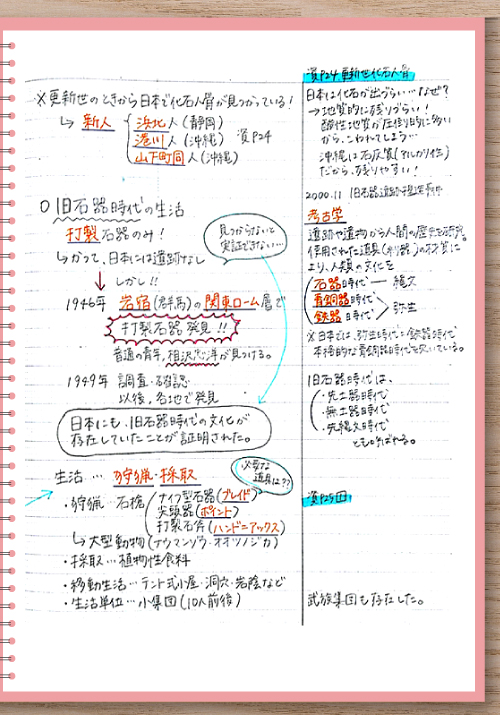 ※更新世のときから日本で化石人骨が見つかっている!
↳ 新人
浜北人(静岡)
港川人(沖縄) 資P24
山下町洞人(沖縄)
○旧石器時代の生活
打製石器のみ!
↳かつて、日本には遺跡なし
しかし!!
見つからないと
実証できない…
1946年 岩宿(群馬)の関東ローム層で
打製石器発見!!
普通の青年、相沢忠洋が見つける。
1949年 調査・確認
以後、各地で発見
日本にも、旧石器時代の文化が
存在していたことが証明された。
生活… 狩猟・採取
必要な
道具は??
・狩猟…石槍
ナイフ型石器(ブレイド)
尖頭器(ポイント)
打製石斧(ハンドニアックス)
↳大型動物(ナウマンゾウ・オオツノジカ)
・採取…植物性食料
・移動生活…テント式小屋・洞穴・岩陰など
・生活単位…小集団(10人前後)
資P24 更新世化石人骨
日本は化石が出づらい…なぜ?
→地質的に残りづらい!
酸性地質が圧倒的に多い
から、こわれてしまう…
沖縄は石灰質(アルカリ性)
だから、残りやすい!
2000.11 旧石器遺跡捏造
考古学
遺跡や遺物から人間の歴史を研究。
使用された道具(利器)の材質に
より、人類の文化を
石器時代 ― 縄文
青銅器時代
鉄器時代 > 弥生
※日本では、弥生時代=鉄器時代
本格的な青銅器時代を欠いている。
旧石器時代は、
・先土器時代
・無土器時代
・先縄文時代
とも呼ばれる。
資P25回
武族集団も存在した。